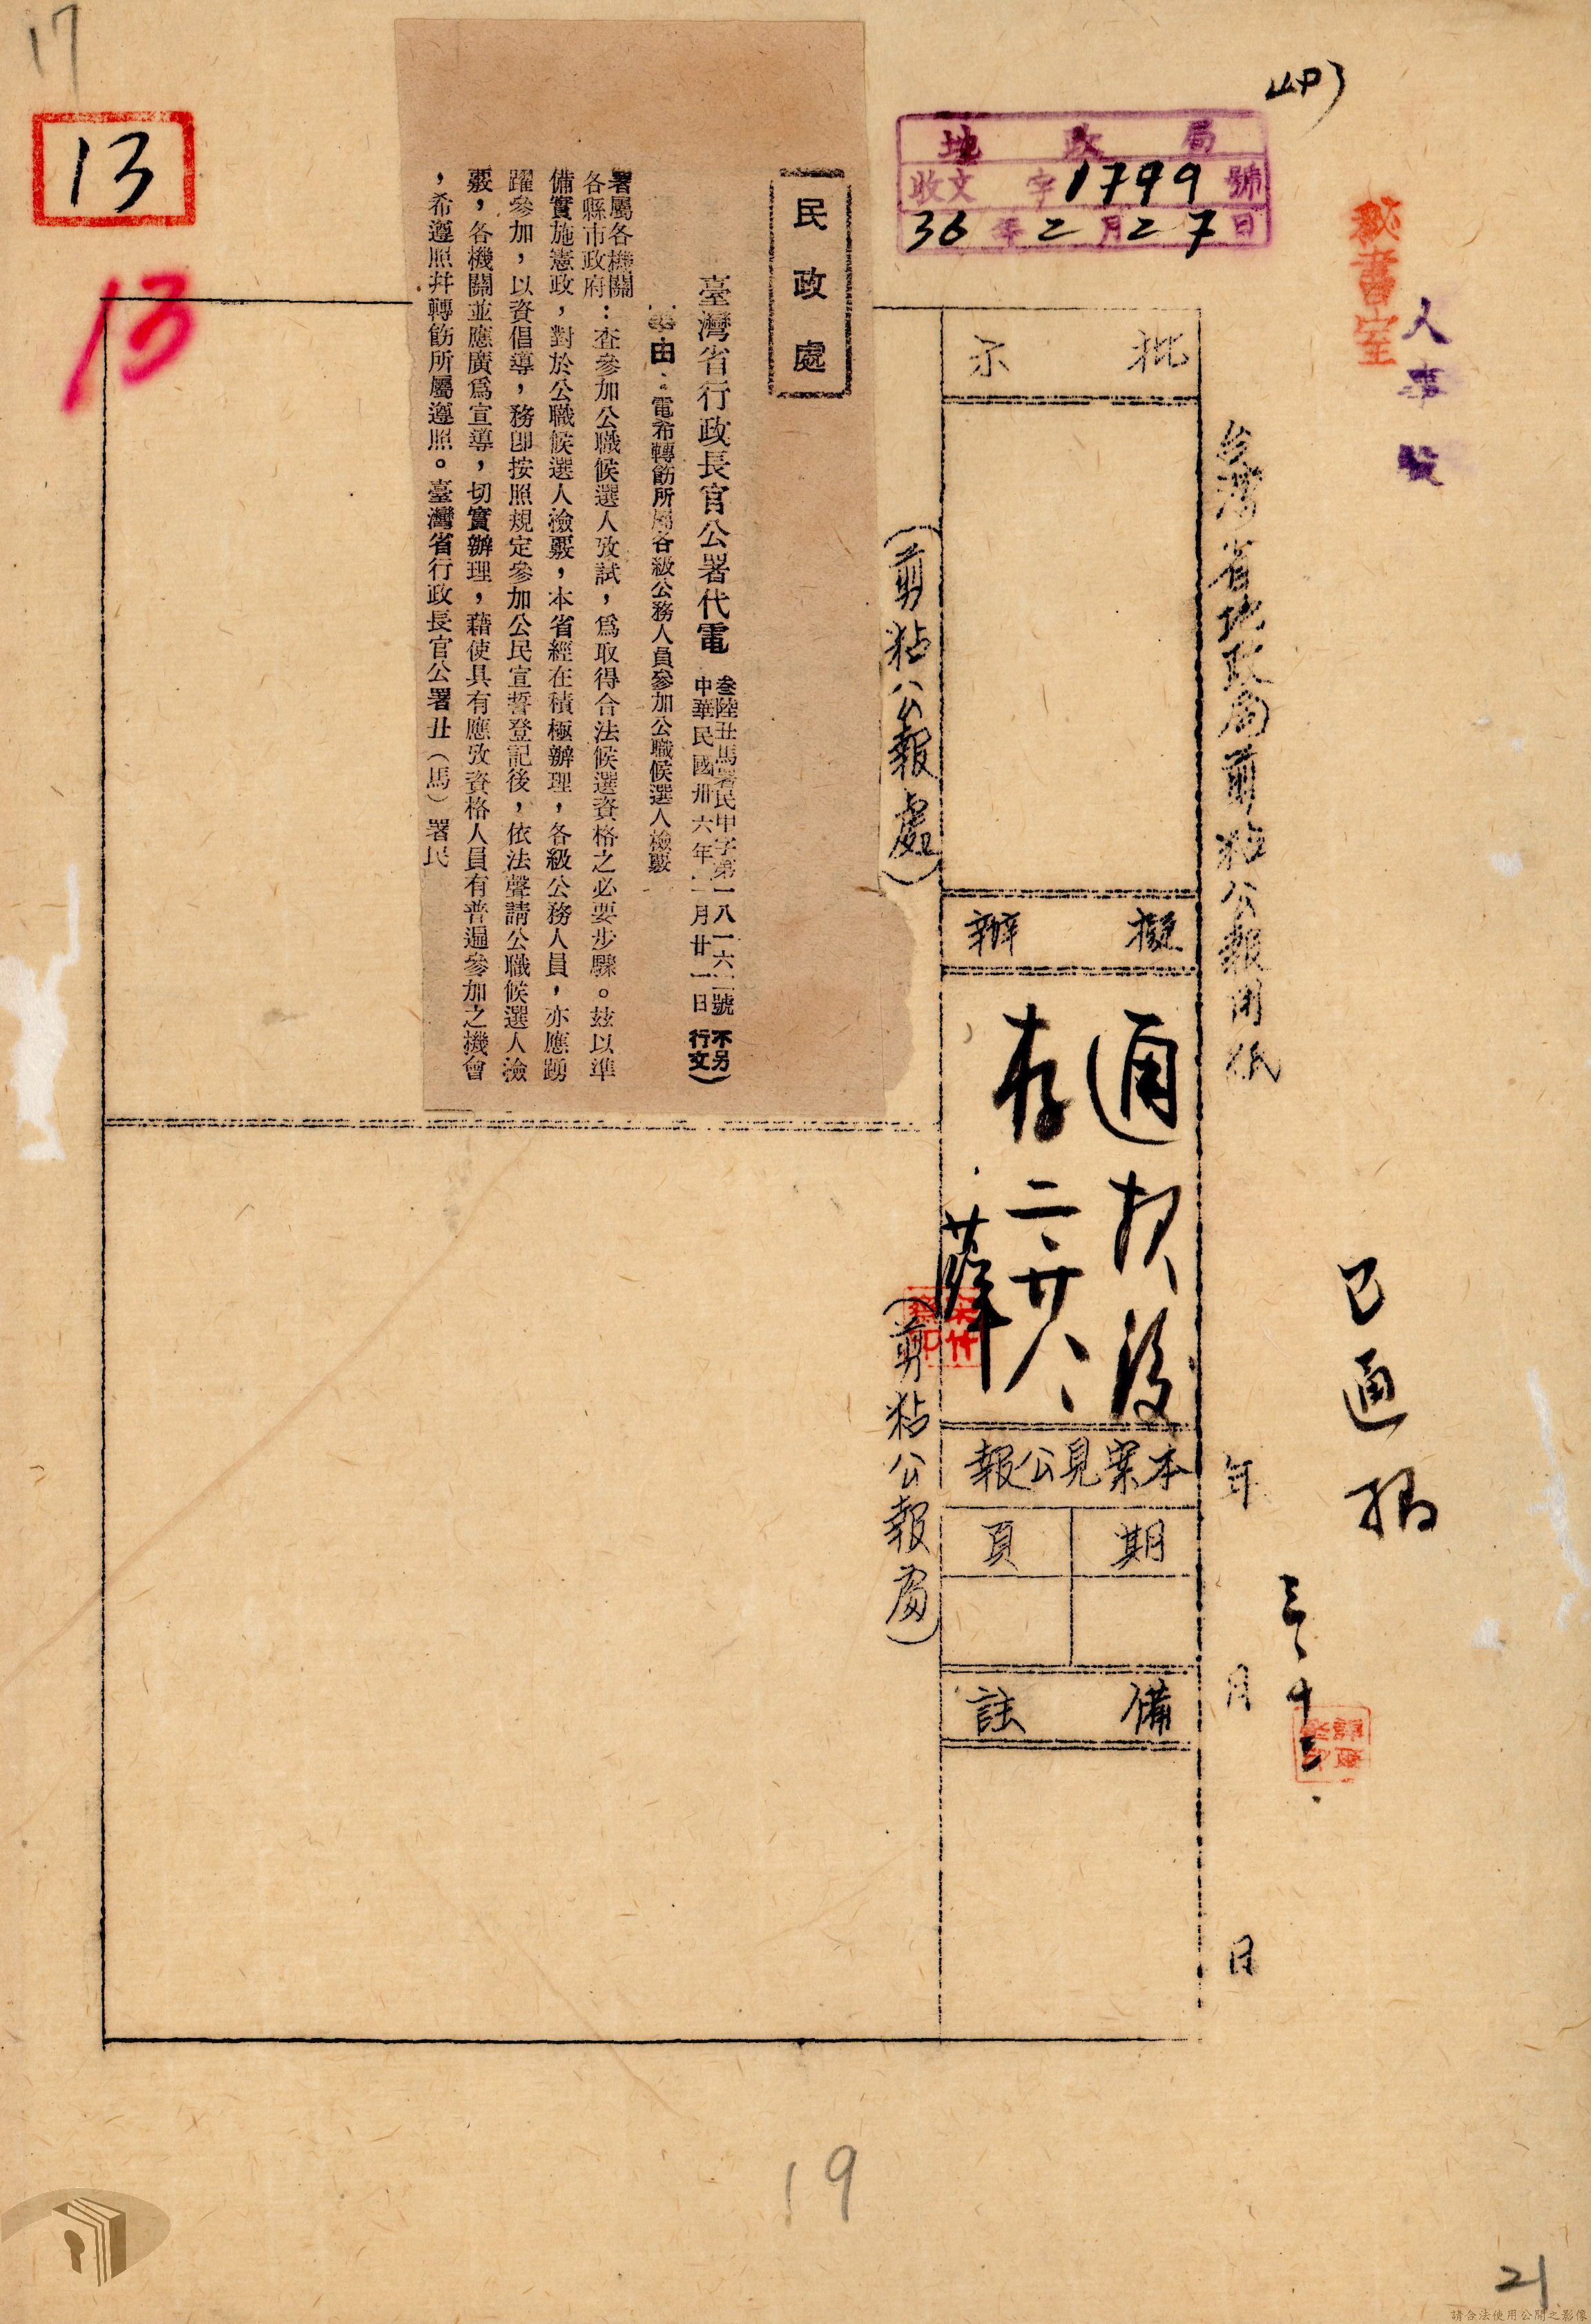 17
13
13
地政局
收文 字1799號
36年2月27日
秘書室
人事股
台灣省地政局剪粘公報用紙
年 月 日
已通报
三、十三.
批示
擬辦
通报後
存
二、廿八、
薛
本案見公報
期 頁
備註
(剪粘公報處)
(剪粘公報處)
民政處
臺灣省行政長官公署代電
叁陸丑馬署民甲字第一八一六二號
中華民國卅六年二月廿一日
(不另行文)
事由：電希轉飭所屬各級公務人員參加公職候選人檢覈
署屬各機關
各縣市政府：查參加公職候選人攷試，爲取得合法候選資格之必要步驟。玆以準
備實施憲政，對於公職候選人檢覈，本省經在積極辦理，各級公務人員，亦應踴
躍參加，以資倡導，務卽按照規定參加公民宣誓登記後，依法聲請公職候選人檢
覈，各機關並應廣爲宣導，切實辦理，藉使具有應攷資格人員有普遍參加之機會
，希遵照幷轉飭所屬遵照。臺灣省行政長官公署丑（馬）署民
19
21
請合法使用公開之影像